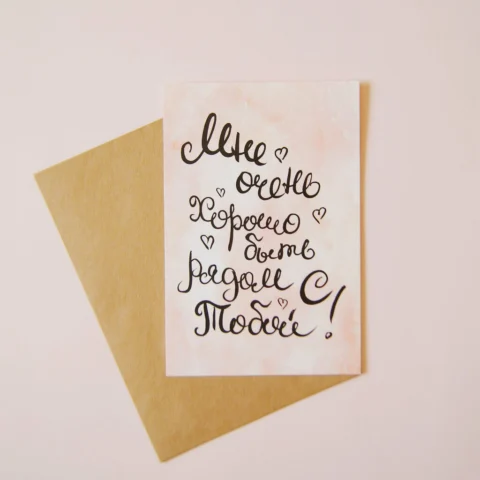 Мне
очень
Хорошо
быть
рядом С
Тобой!